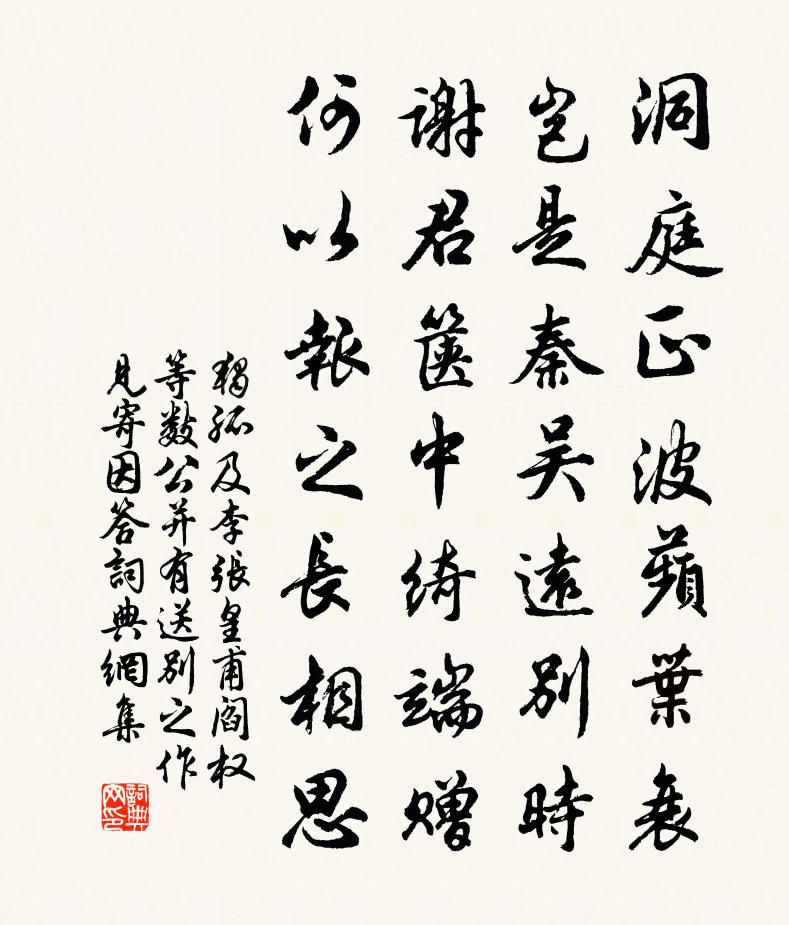 洞庭正波蘋葉衰
豈是秦吴遠別時
謝君篋中綺端贈
何以報之長相思
獨孤及李張皇甫閻权
等數公并有送別之作
見寄因答詞典網集
詞典网印